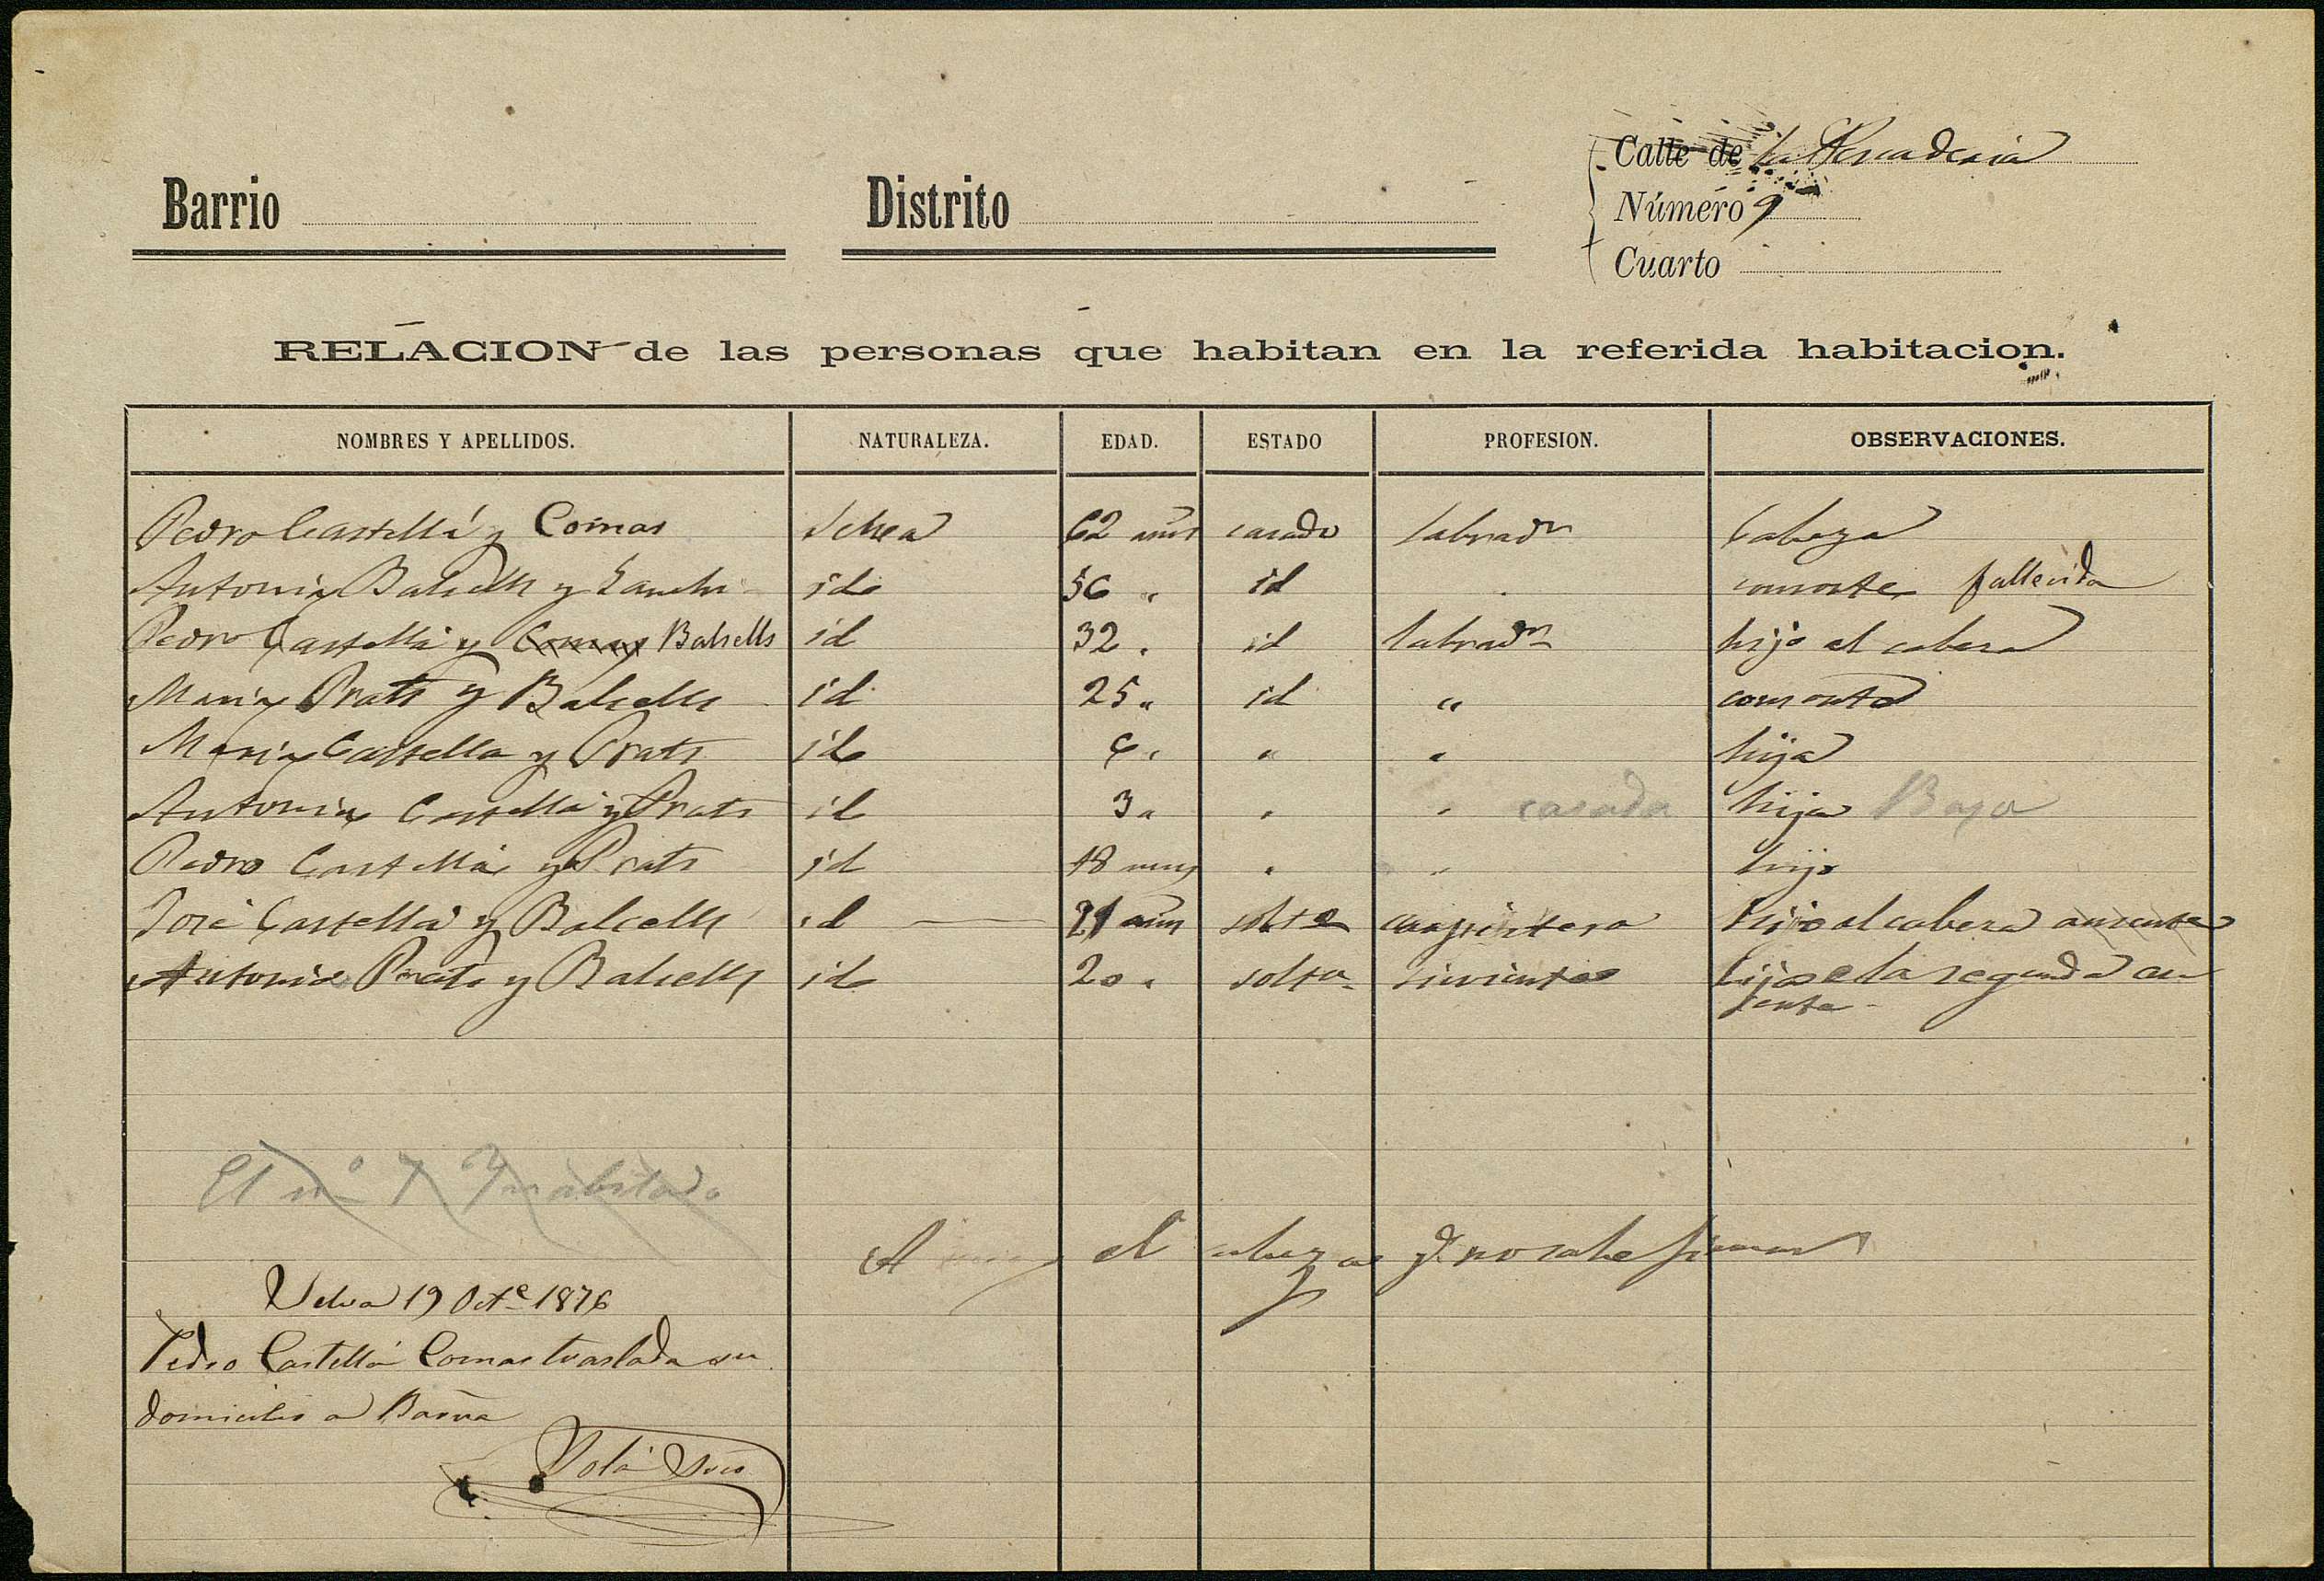 Calle de la Pescaderia
Barrio Distrito Número 9
Cuarto
RELACION de las personas que habitan en la referida habitacion.
NOMBRES Y APELLIDOS. NATURALEZA. EDAD. ESTADO PROFESION. OBSERVACIONES.
Pedro Castellá y Comas Selva 62 años casado labrador Cabeza
Antonia Balcells y id 56 " id consorte fallecida
Pedro Castellá y Comas Balsells id 32 " id labrador hijo al cabeza
Maria Prats y Balcells id 25 " id " consorte
Maria Castella y Prats id 6 " " " hija
Antonia Castella y Prats id 3 " " " casada hija Baja
Pedro Castellá y Prats id 18 mes " " hijo
José Castellá y Balcells id 21 años solto carpintero hijo al cabeza ausente
Antonia Prats y Balcells id 20 " solta sirvienta hija e la segunda au
sente
El nº 7 Inabitado
el cabeza q. no sabe firmar
Selva 19 Octe 1876
Pedro Castellá Comas traslada su
domicilio a Barna
Solá Srio